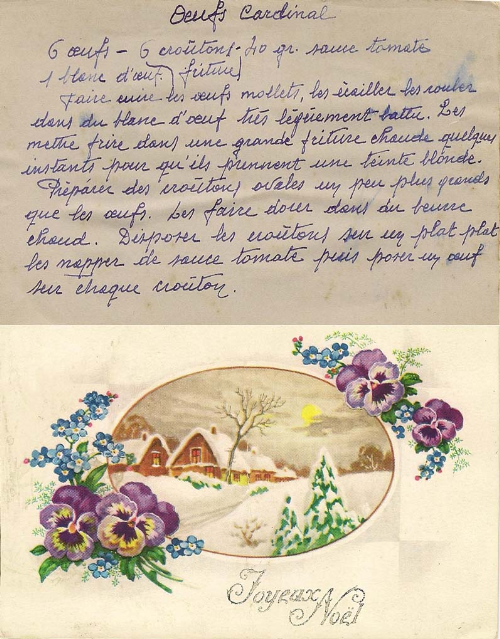 Œufs Cardinal
6 œufs - 6 croûtons - 20 gr. sauce tomate
1 blanc d'œuf) friture)
Faire cuire les œufs mollets, les écailler les rouler
dans du blanc d'œuf très légèrement battu. Les
mettre frire dans une grande friture chaude quelques
instants pour qu'ils prennent une teinte blonde.
Préparer des croûtons ovales un peu plus grands
que les œufs. Les faire dorer dans du beurre
chaud. Disposer les croûtons sur un plat plat
les napper de sauce tomate puis poser un œuf
sur chaque croûton.
Joyeux Noël